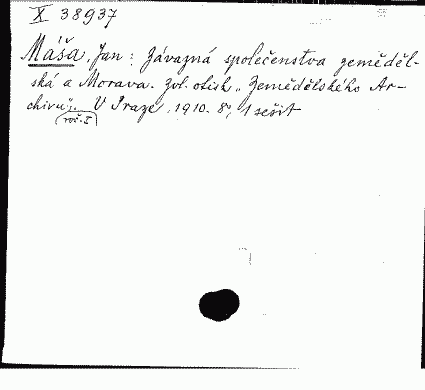 X 38937
Máša, Jan: Závazná společenstva zeměděl-
ská a Morava. Zvl. otisk „Zemědělského Ar-
chivu". V Praze, 1910. 8°, 1 sešit
roč. I